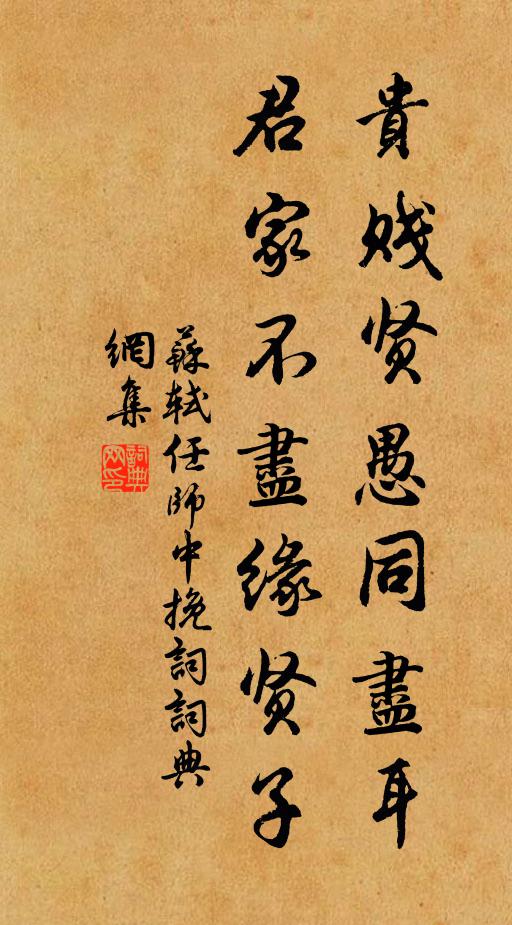 貴賤贤愚同盡耳
君家不盡缘贤子
蘇軾任師中挽詞詞典
網集
詞典
网印